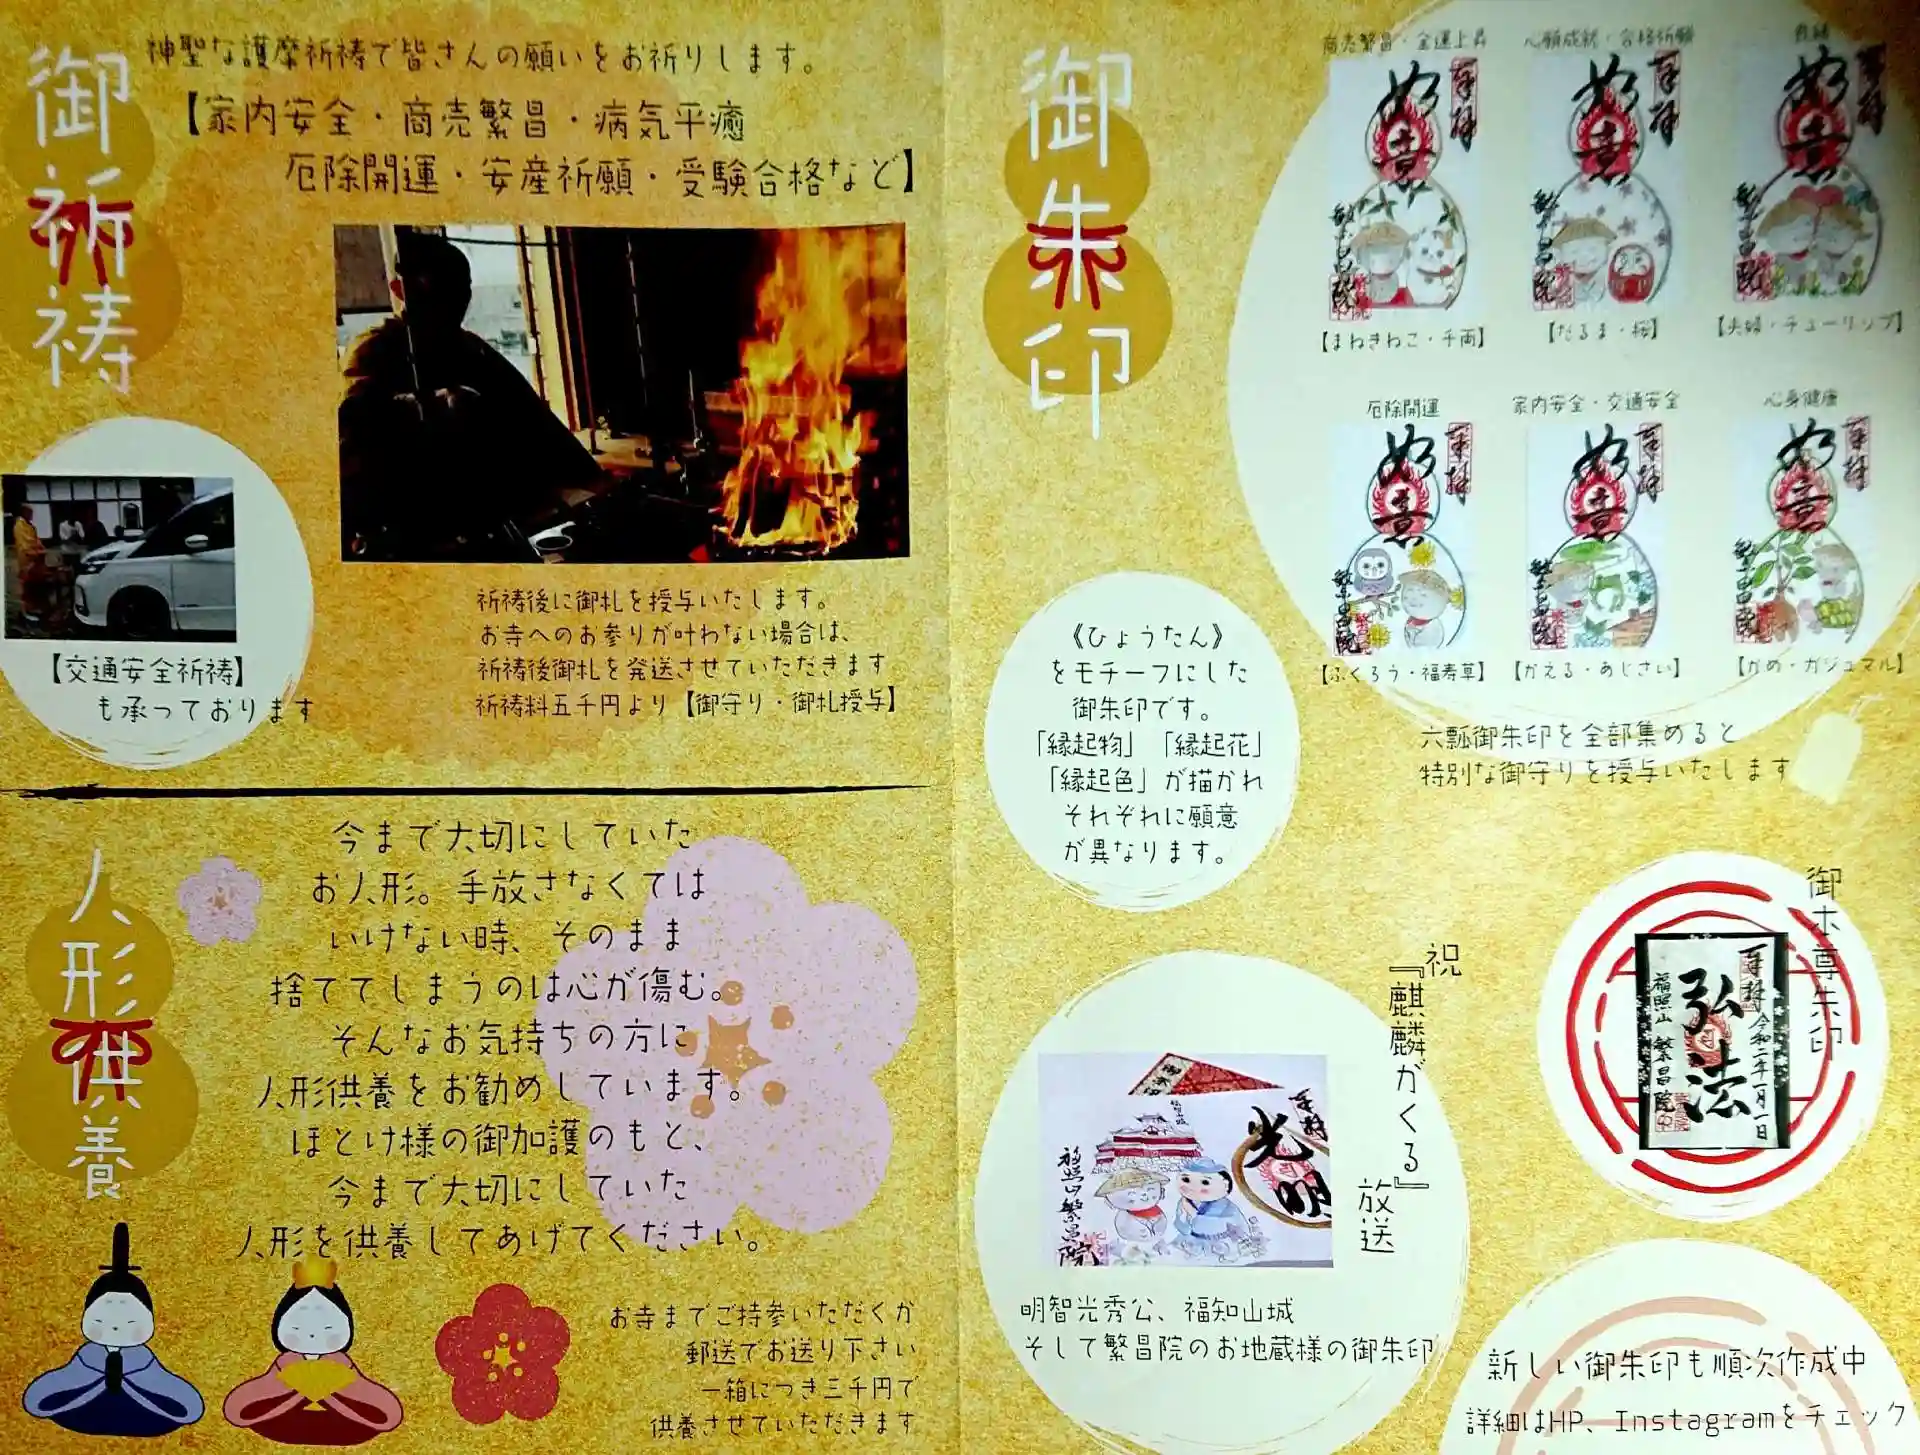 御祈祷
神聖な護摩祈祷で皆さんの願いをお祈りします。
【家内安全・商売繁昌・病気平癒
厄除開運・安産祈願・受験合格など】
祈祷後に御札を授与いたします。
お寺へのお参りが叶わない場合は、
祈祷後御札を発送させていただきます
祈祷料五千円より【御守り・御札授与】
【交通安全祈祷】
も承っております
人形供養
今まで大切にしていた
お人形。手放さなくては
いけない時、そのまま
捨ててしまうのは心が傷む。
そんなお気持ちの方に
人形供養をお勧めしています。
ほとけ様の御加護のもと、
今まで大切にしていた
人形を供養してあげてください。
お寺までご持参いただくか
郵送でお送り下さい
一箱につき三千円で
供養させていただきます
御朱印
商売繁昌・金運上昇
奉拝
如意
繁昌院
【まねきねこ・千両】
心願成就・合格祈願
奉拝
如意
繁昌院
【だるま・桜】
良縁
奉拝
如意
繁昌院
【夫婦・チューリップ】
厄除開運
奉拝
如意
繁昌院
【ふくろう・福寿草】
家内安全・交通安全
奉拝
如意
繁昌院
【かえる・あじさい】
心身健康
奉拝
如意
繁昌院
【かめ・ガジュマル】
《ひょうたん》
をモチーフにした
御朱印です。
「縁起物」「縁起花」
「縁起色」が描かれ
それぞれに願意
が異なります。
六瓢御朱印を全部集めると
特別な御守りを授与いたします
御本尊朱印
奉拝 令和二年一月一日
弘法
福照山 繁昌院
祝
『麒麟がくる』
放送
奉拝
光明
福照山繁昌院
明智光秀公、福知山城
そして繁昌院のお地蔵様の御朱印
新しい御朱印も順次作成中
詳細はHP、Instagramをチェック